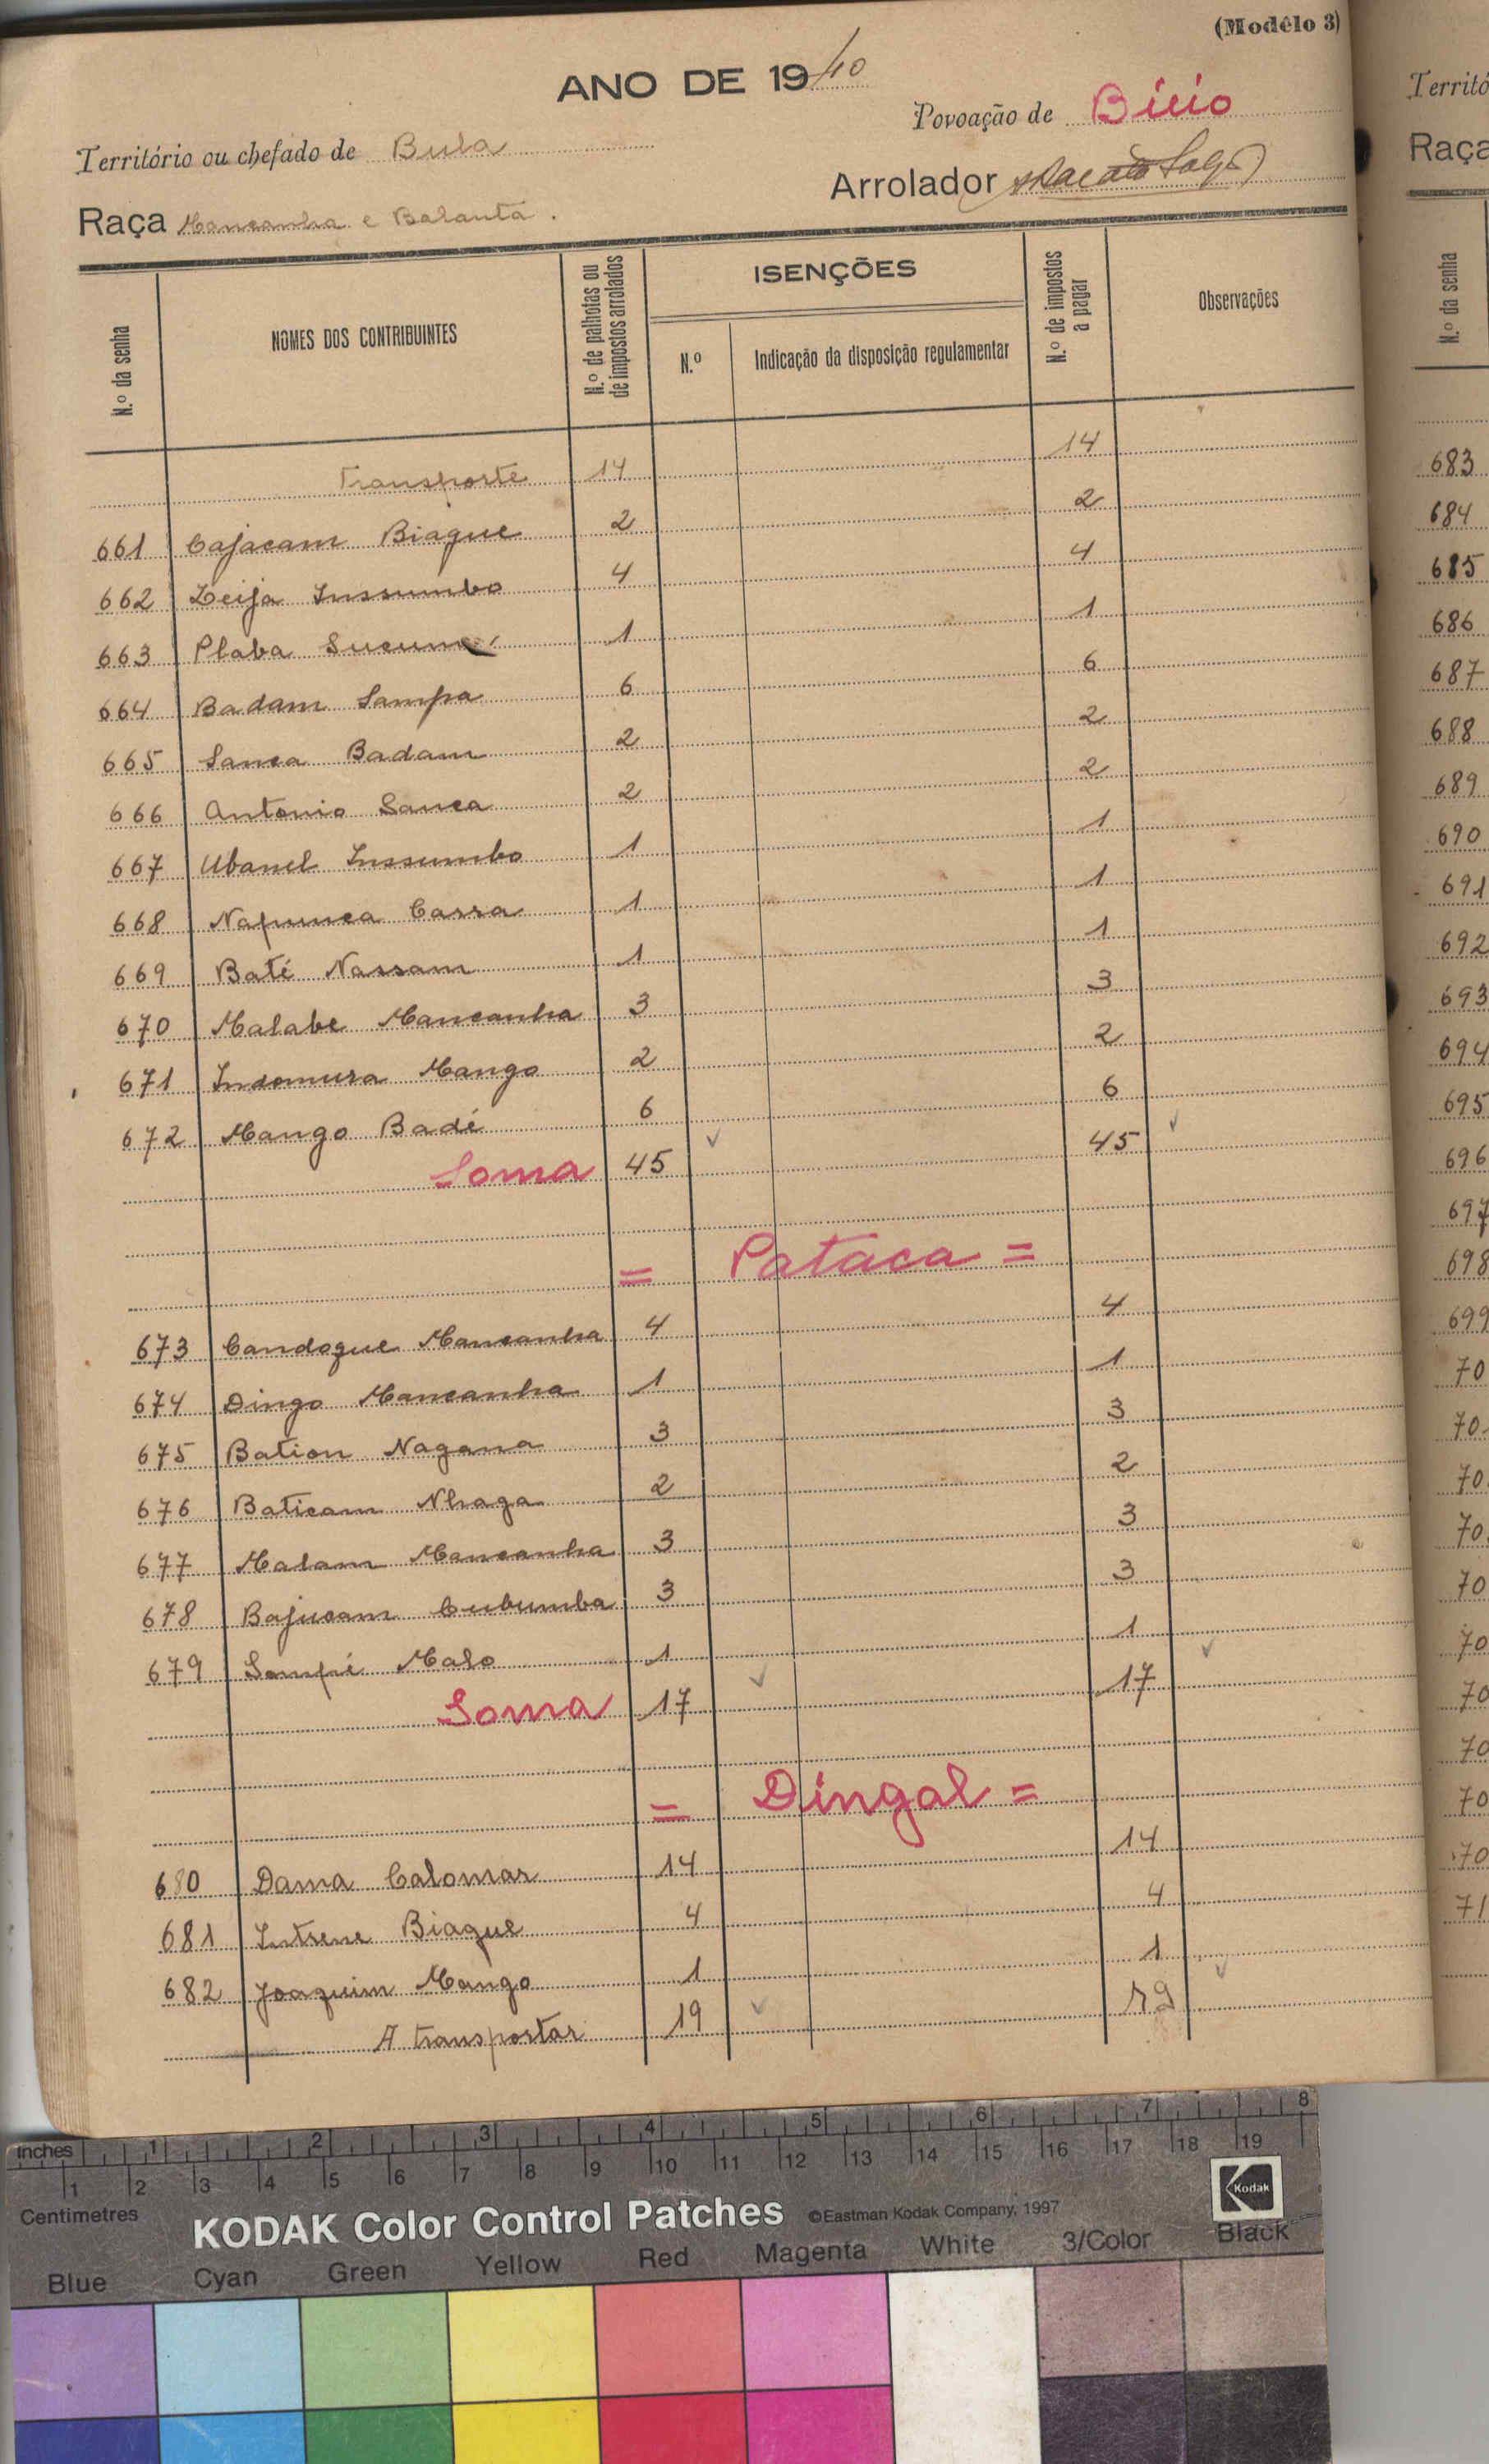 (Modêlo 3)
ANO DE 1940
Povoação de Bicio
Território ou chefado de Bula
Arrolador
Raça Mancanha e Balanta.
N.º da senha
NOMES DOS CONTRIBUINTES
N.º de palhotas ou de impostos arrolados
ISENÇÕES
N.º
Indicação da disposição regulamentar
N.º de impostos a pagar
Observações
Transporte 14 14
661 Cajacam Biague 2 2
662 Leija Inssumbo 4 4
663 Plaba 1 1
664 Badam Sampa 6 6
665 Sanca Badam 2 2
666 Antonio Sanca 2 2
667 Ubanel Inssumbo 1 1
668 Napunca Cassa 1 1
669 Baté Nassam 1 1
670 Malabe Mancanha 3 3
671 Indomusa Mango 2 2
672 Mango Badé 6 6
Soma 45 ✓ 45 ✓
= Pataca =
673 Candoque Mancanha 4 4
674 Dingo Mancanha 1 1
675 Bation Nagana 3 3
676 Baticam Nhaga 2 2
677 Malam Mancanha 3 3
678 Bajucam Cubumba 3 3
679 Sampé Malo 1 1
Soma 17 ✓ 17 ✓
= Dingal =
680 Dama Calomar 14 14
681 Intrene Biague 4 4
682 Joaquim Mango 1 1
A transportar 19 ✓ 19 ✓
Territó
Raça
N.º da senha
683
684
685
686
687
688
689
690
691
692
693
694
695
696
697
698
699
70
70
70
70
70
70
70
70
70
70
71
Inches 1 2 3 4 5 6 7 8
1 2 3 4 5 6 7 8 9 10 11 12 13 14 15 16 17 18 19
Centimetres
KODAK Color Control Patches ©Eastman Kodak Company, 1997
Kodak
Blue Cyan Green Yellow Red Magenta White 3/Color Black